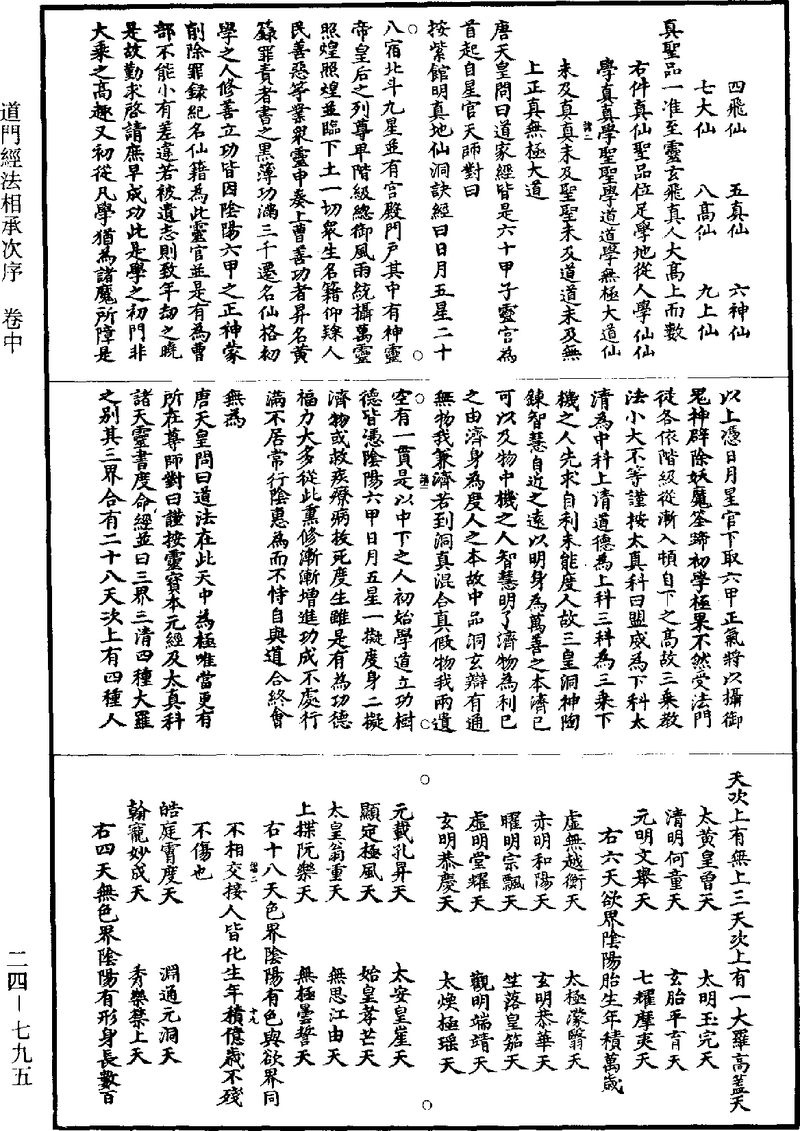 道門經法相承次序　卷中
二四—七九五
四飛仙　五真仙　六神仙
七大仙　八高仙　九上仙
真聖品一准至靈玄飛真人大高上而數
右件真仙聖品位足學地從人學仙仙
學真真學聖聖學道道學無極大道仙
未及真真未及聖聖未及道道未及無
上正真無極大道
唐天皇問曰道家經皆是六十甲子靈官為
首起自星官天師對曰
按紫館明真地仙洞訣經曰日月五星二十
八宿北斗九星並有宮殿門戶其中有神靈
帝皇后之列尊卑階級總御風雨統攝萬靈
照煌照煌並臨下土一切眾生名籍仰錄人
民善惡等業眾靈申奏上曹善功者昇名黃
籙罪責者書之黑簿功滿三千遷名仙格初
學之人修善立功皆因陰陽六甲之正神蒙
削除罪錄紀名仙籍為此靈官並是有為曹
部不能小有差違若被遺志則致年劫之曉
是故勤求啓請庶早成功此是學之初門非
大乘之高趣又初從凡學猶為諸魔所障是
以上憑日月星官下取六甲正氣將以攝御
鬼神辟除妖魔筌蹄初學極果不然受法門
徒各依階級從漸入頓自下之高故三乘教
法小大不等謹按太真科曰盟威為下科太
清為中科上清道德為上科三科為三乘下
機之人先求自利未能度人故三皇洞神陶
鍊智慧自近之遠以明身為萬善之本濟已
可以及物中機之人智慧明了濟物為利已
之由濟身為度人之本故中品洞玄辯有通
無物我兼濟若到洞真混合真假物我兩遺
空有一貫是以中下之人初始學道立功樹
德皆憑陰陽六甲日月五星一擬度身二擬
濟物或救疾療病救死度生雖是有為功德
福力大多從此熏修漸漸增進功成不處行
滿不居常行陰惠為而不恃自與道合終會
無為
唐天皇問曰道法在此天中為極唯當更有
所在尊師對曰謹按靈寶本元經及太真科
諸天靈書度命經並曰三界三清四種大羅
之別其三界合有二十八天次上有四種人
天次上有無上三天次上有一大羅高蓋天
太黃皇曾天　太明玉完天
清明何童天　玄胎平育天
元明文舉天　七耀摩夷天
右六天欲界陰陽胎生年積萬歲
虛無越衡天　太極濛翳天
赤明和陽天　玄明恭華天
曜明宗飄天　竺落皇笳天
虛明堂耀天　觀明端靖天
玄明恭慶天　太煥極瑶天
元載孔昇天　太安皇崖天
顯定極風天　始皇孝芒天
太皇翁重天　無思江由天
上揲阮樂天　無極曇誓天
右十八天色界陰陽有色與欲界同
不相交接人皆化生年積億歲不殘
不傷也
皓庭霄度天　淵通元洞天
翰寵妙成天　秀樂禁上天
右四天無色界陰陽有形身長數百